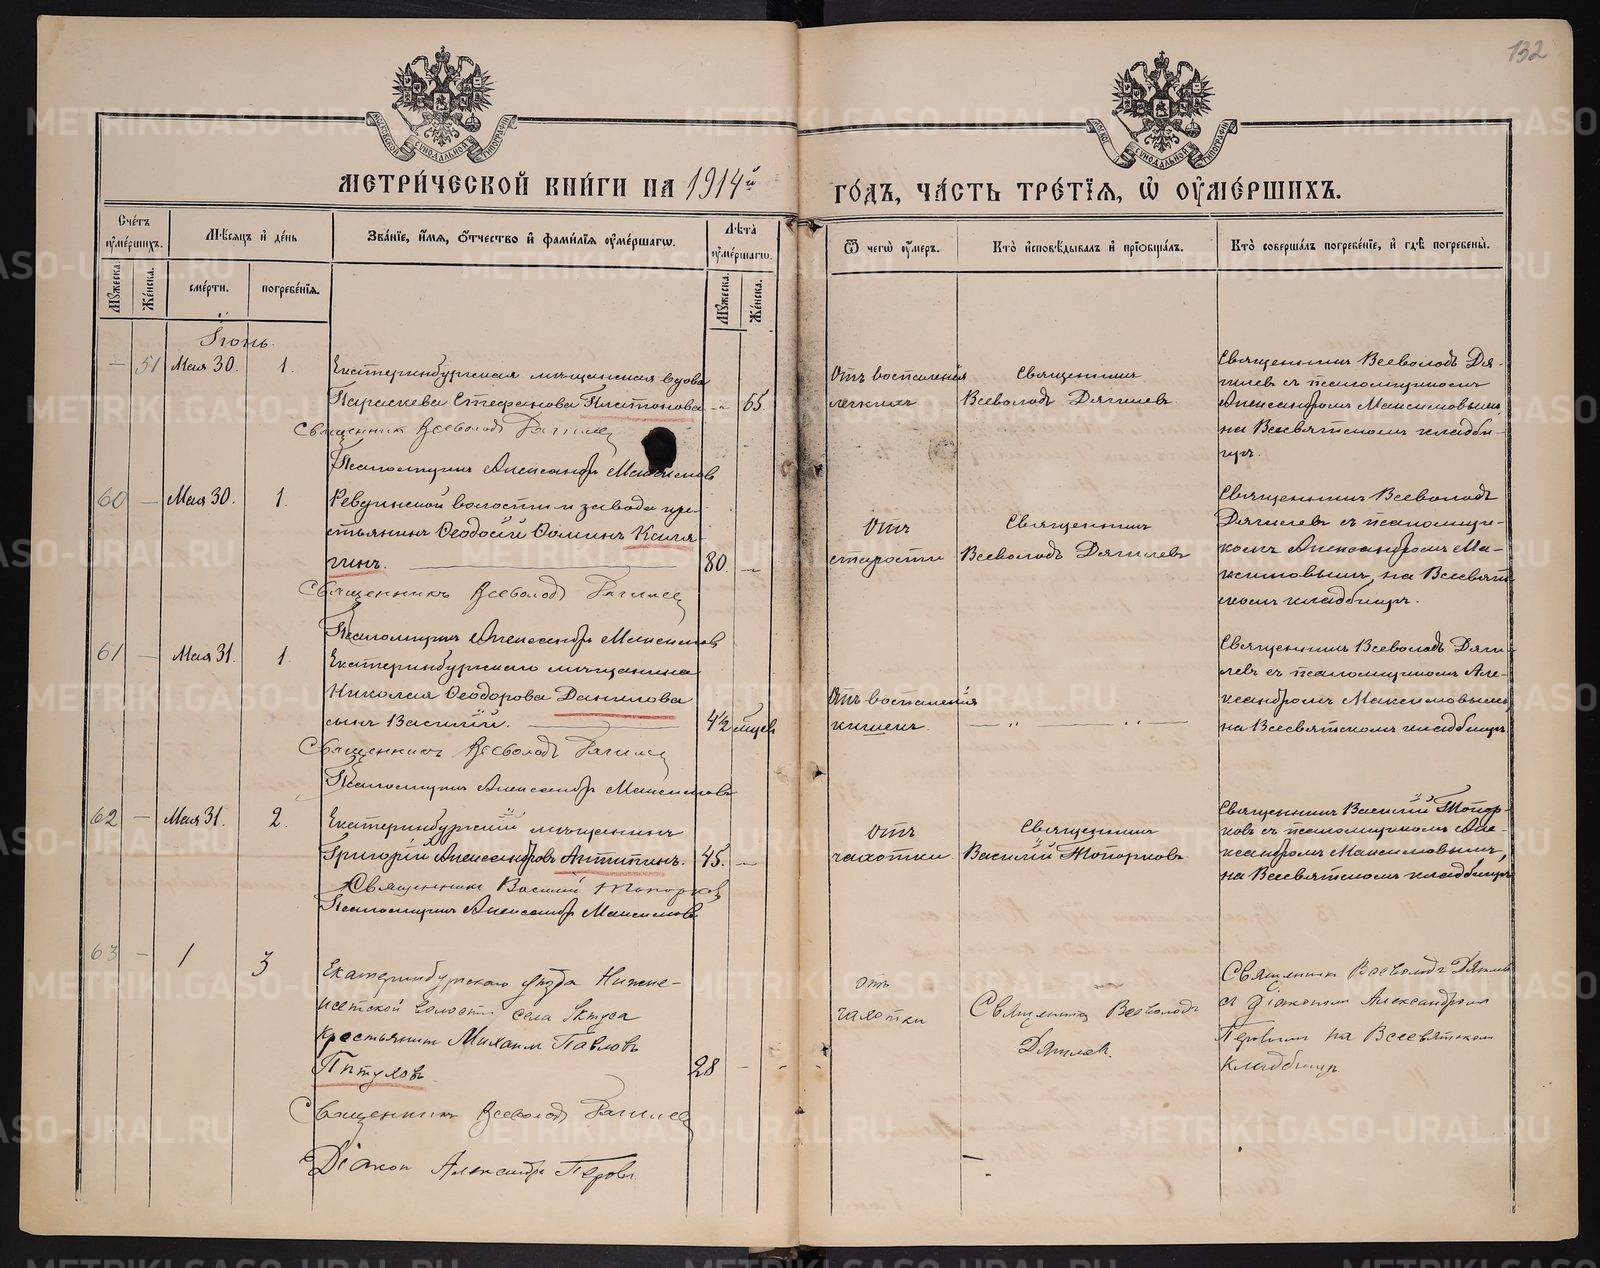 132
МЕТРИ́ЧЕСКОЙ КНИ́ГИ НА 1914й
ГО́ДЪ, ЧА́СТЬ ТРЕ́ТІѦ, Ѡ҆ ОУ҆МЕ́РШИХЪ.
Сче́тъ оу҆ме́ршихъ.
Мѣ́сяцъ и҆ де́нь
Зва́ніе, и҆́мѧ, о҆́тчество и҆ фами́лїѧ оу҆ме́ршагѡ.
Лѣ́та оу҆ме́ршагѡ.
Ѿ чегѡ̀ оу҆́меръ.
Кто̀ и҆сповѣ́дывалъ и҆ прїѡбща́лъ.
Кто̀ соверша́лъ погребе́нїе, и҆ гдѣ̀ погребены̀.
Мꙋ́жеска.
Же́нска.
сме́рти.
погребе́нїѧ.
Мꙋ́жеска.
Же́нска.
Іюнь.
— 51 Мая 30. 1.
Екатеринбургская мѣщанская вдова
Параскева Стефанова Платонова — 65.
Священник Всеволод Дягилев
Псаломщикъ Александръ Максимовъ
Отъ воспаленія
легкихъ
Священникъ
Всеволодъ Дягилевъ
Священникъ Всеволодъ Дя-
гилевъ съ псаломщикомъ
Александромъ Максимовымъ,
на Всесвятскомъ кладби-
щѣ.
60 — Мая 30. 1.
Ревдинской волости и завода кре-
стьянинъ Ѳеодосій Ѳоминъ Ксиля-
гинъ. 80. —
Священникъ Всеволод Дягилев
Псаломщикъ Александръ Максимовъ
Отъ
старости
Священникъ
Всеволодъ Дягилевъ
Священникъ Всеволодъ
Дягилевъ съ псаломщи-
комъ Александромъ Ма-
ксимовымъ, на Всесвят-
скомъ кладбищѣ.
61 — Мая 31. 1.
Екатеринбургскаго мѣщанина
Николая Ѳеодорова Данилова
сынъ Василій. 4½ мѣсяц.
Священникъ Всеволод Дягилев
Псаломщикъ Александръ Максимовъ
Отъ воспаленія
кишекъ.
— „ „ —
Священникъ Всеволодъ Дяги-
левъ съ псаломщикомъ Але-
ксандромъ Максимовымъ,
на Всесвятскомъ кладбищѣ
62 — Мая 31. 2.
Екатеринбургскій мѣщанинъ
Григорій Александровъ Антипинъ. 45. —
Священникъ Василій Топорков
Псаломщикъ Александръ Максимовъ
Отъ
чахотки
Священникъ
Василій Топорковъ
Священникъ Василій Топор-
ковъ съ псаломщикомъ Але-
ксандромъ Максимовымъ,
на Всесвятскомъ кладбищѣ
63 — 1 3
Екатеринбургскаго уѣзда Нижне-
исетской волости села
крестьянинъ Михаил Павловъ
Питуховъ 28 —
Священникъ Всеволод Дягилев
Діакон Александръ Перовъ
отъ
чахотки
Священник Всеволодъ
Дягилев.
Священникъ Всеволодъ Дягилевъ
съ діакономъ Александромъ
Перовымъ на Всесвятском
кладбищѣ